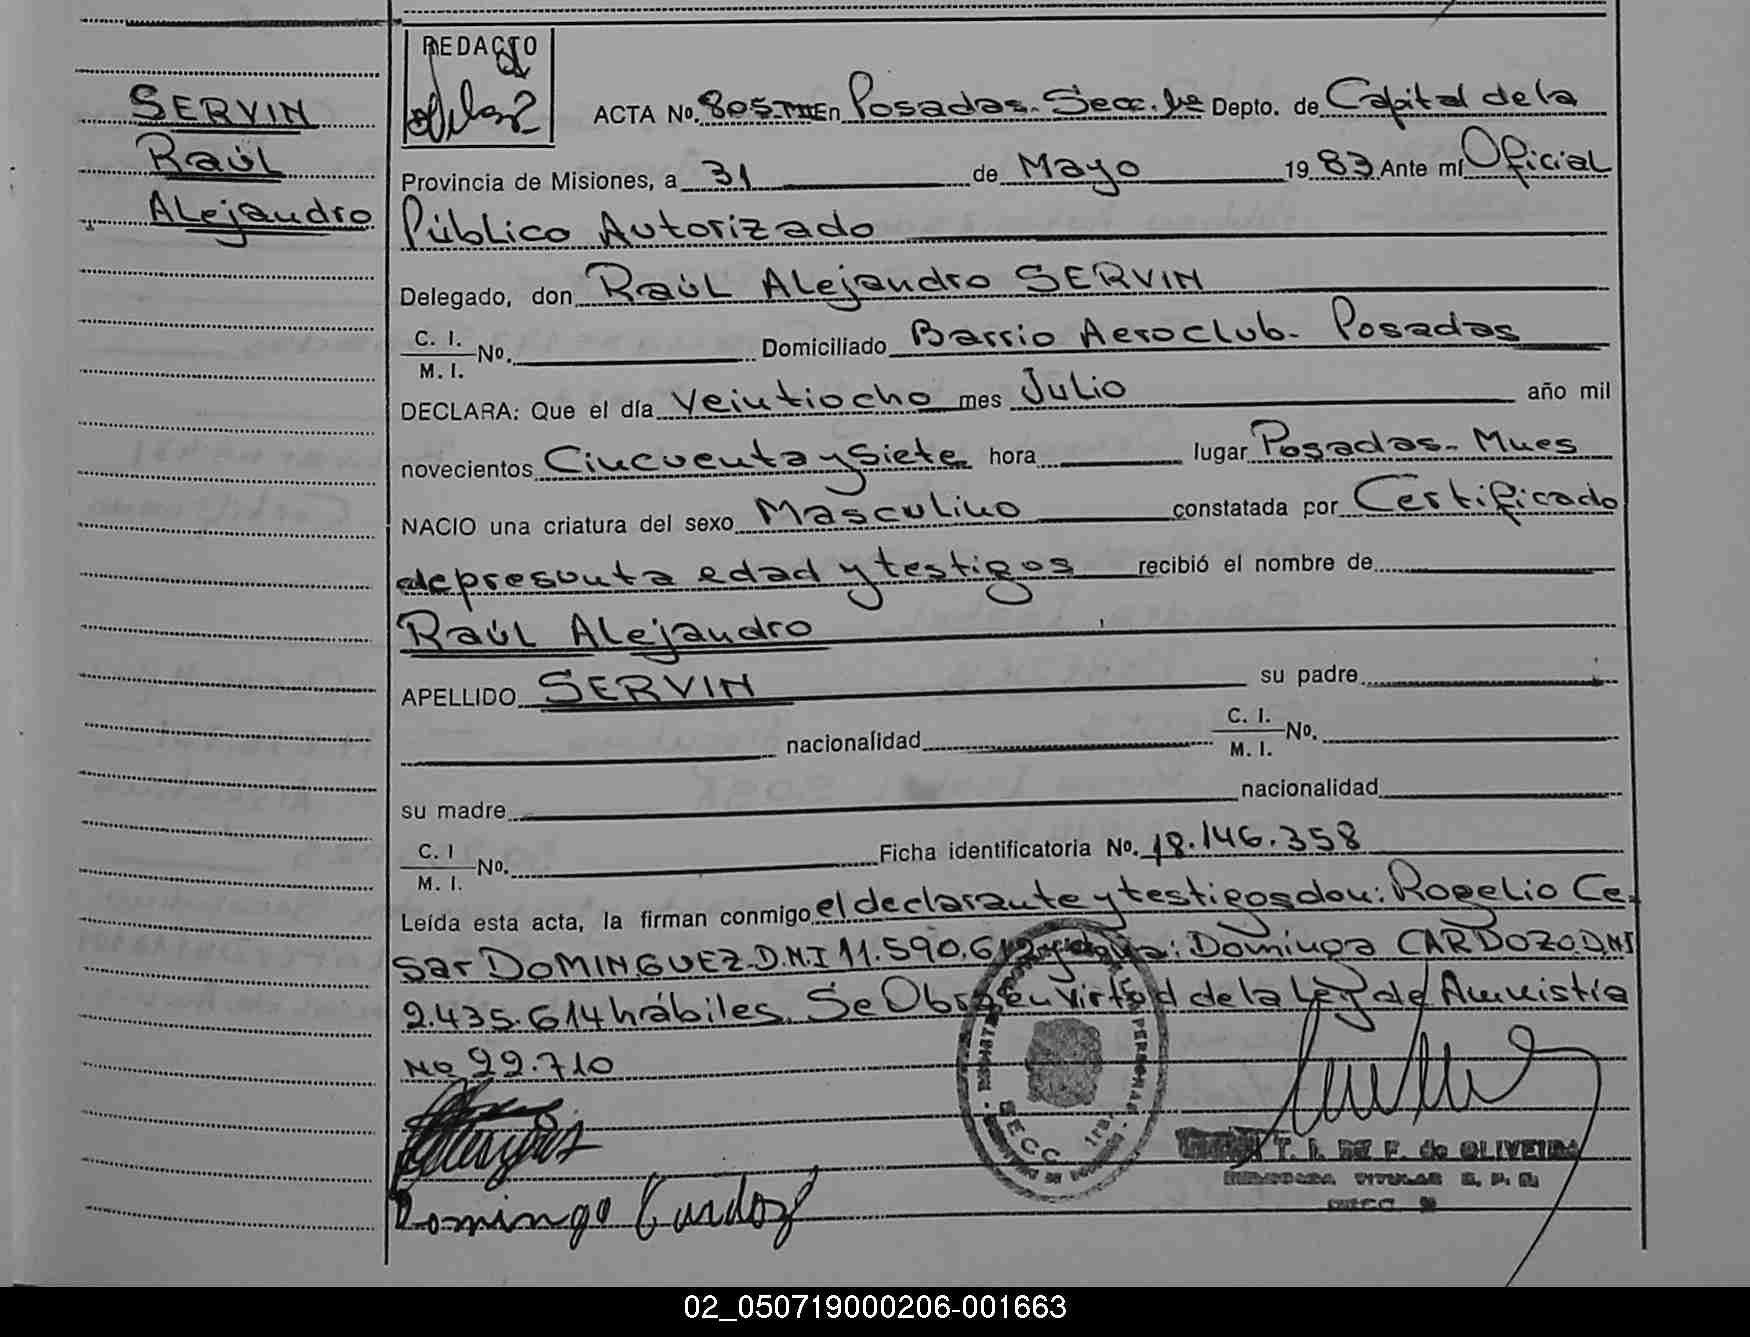 SERVIN
Raúl
Alejandro
REDACTO
ACTA No. 805 TIII En Posadas. Secc. 1ra Depto. de Capital de la
Provincia de Misiones, a 31 de Mayo 1983 Ante mí Oficial
Público Autorizado
Delegado, don Raúl Alejandro SERVIN
C. I.
M. I. No. Domiciliado Barrio Aeroclub. Posadas
DECLARA: Que el día Veintiocho mes Julio año mil
novecientos Cincuenta y Siete hora lugar Posadas. Mnes
NACIO una criatura del sexo Masculino constatada por Certificado
de presunta edad y testigos recibió el nombre de
Raúl Alejandro
APELLIDO SERVIN su padre
nacionalidad C. I.
M. I. No.
su madre nacionalidad
C. I
M. I. No. Ficha identificatoria No. 18.146.358
Leída esta acta, la firman conmigo el declarante y testigos don: Rogelio Ce-
sar DOMINGUEZ. D.N.I 11.590.612 y : Domingo CARDOZO. D.N.I
2.435.614 hábiles. Se Obra en virtud de la Ley de Amnistía
No 22.710
Domingo Cardozo
SECC 1ra.
T. I. DE F. de OLIVEIRA
TITULAR R. P. P.
SECC.
02_050719000206-001663